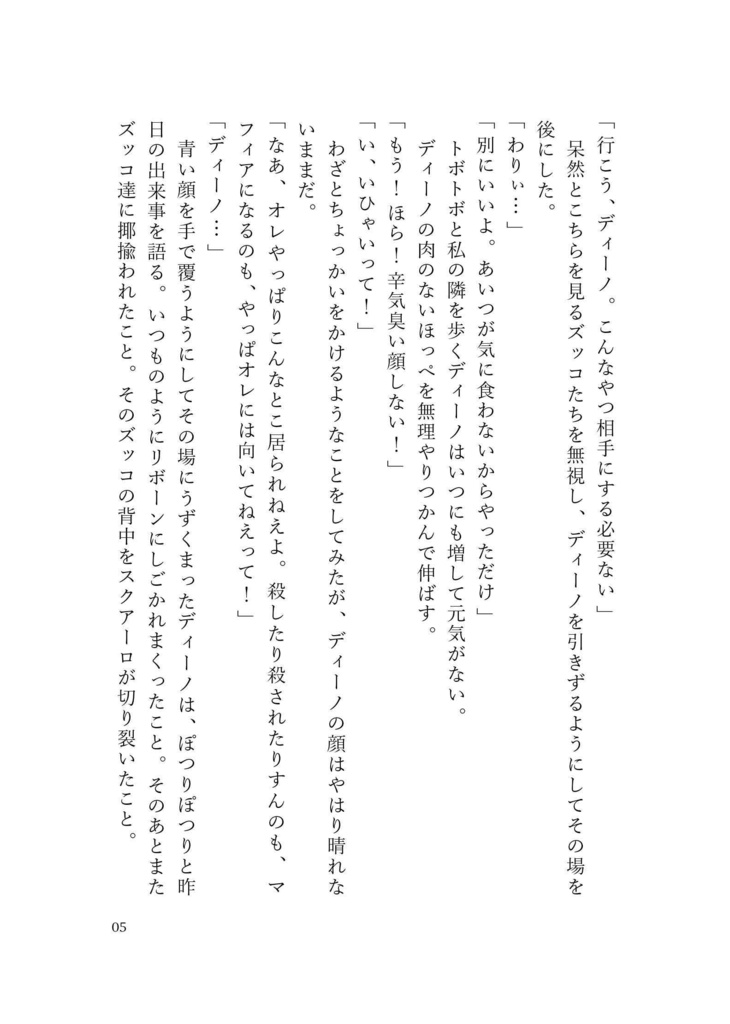 「行こう、ディーノ。こんなやつ相手にする必要ない」
　呆然とこちらを見るズッコたちを無視し、ディーノを引きずるようにしてその場を
後にした。
「わりぃ…」
「別にいいよ。あいつが気に食わないからやっただけ」
　トボトボと私の隣を歩くディーノはいつにも増して元気がない。
　ディーノの肉のないほっぺを無理やりつかんで伸ばす。
「もう！ほら！辛気臭い顔しない！」
「い、いひゃいって！」
　わざとちょっかいをかけるようなことをしてみたが、ディーノの顔はやはり晴れな
いままだ。
「なあ、オレやっぱりこんなとこ居られねえよ。殺したり殺されたりすんのも、マ
フィアになるのも、やっぱオレには向いてねえって！」
「ディーノ…」
　青い顔を手で覆うようにしてその場にうずくまったディーノは、ぽつりぽつりと昨
日の出来事を語る。いつものようにリボーンにしごかれまくったこと。そのあとまた
ズッコ達に揶揄われたこと。そのズッコの背中をスクアーロが切り裂いたこと。
05